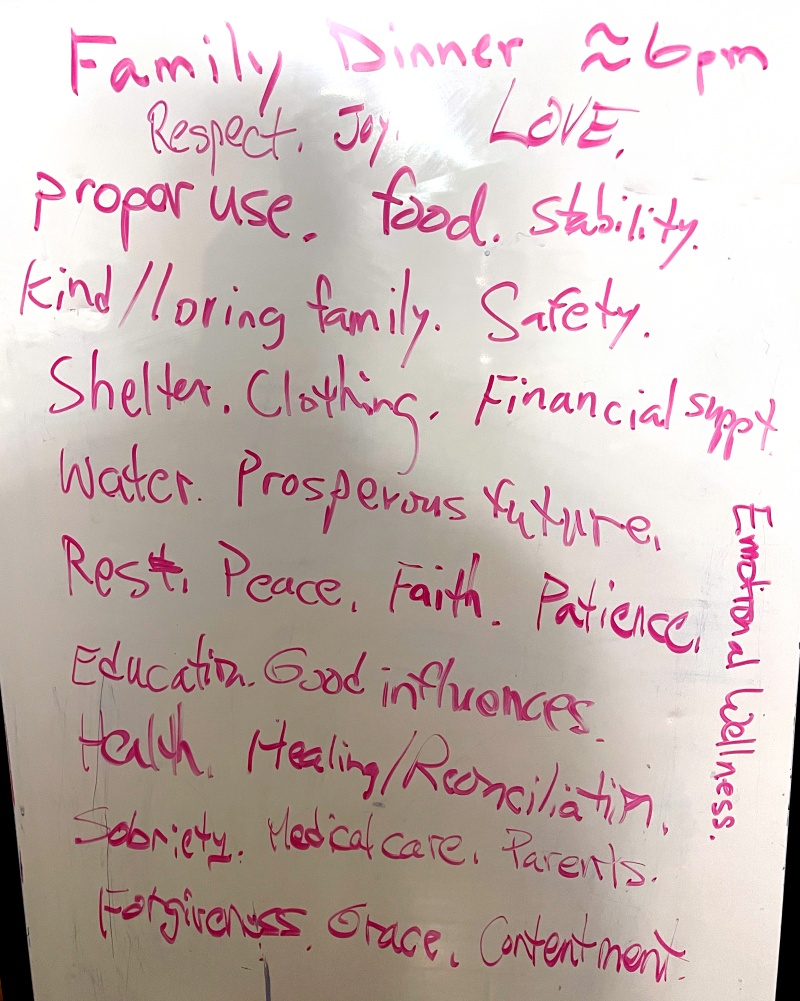 Family Dinner ≈6pm
Respect. Joy. LOVE.
propor use. food. Stability.
Kind/loving family. Safety.
Shelter. Clothing. Financial suppt
Water. Prosperous future.
Rest. Peace. Faith. Patience.
Education. Good influences.
Health. Healing/Reconciliation.
Sobriety. Medical care. Parents.
Forgiveness. Grace. Contentment.
Emotional Wellness.